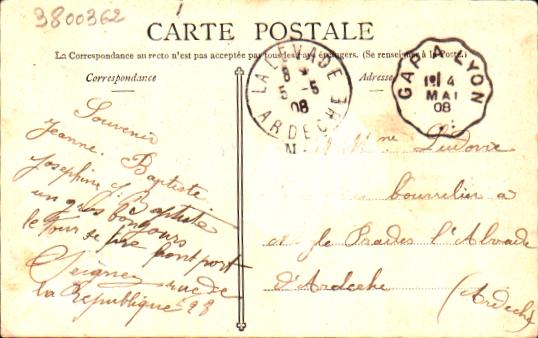 3800362
CARTE POSTALE
La Correspondance au recto n'est pas acceptée par tous les pays étrangers. (Se renseigner à la Poste.)
Correspondance
Adresse
LA LEVADE
8 * 5 - 5
08
ARDECHE
GAP A LYON
1° 4
MAI
08
Souvenir
Jeanne. Baptiste
Josephine J. Baptiste
un gros bonjours
le tour de
rue de
la République 28
M
bourrelier a
Prades l'Alvade
d'Ardeche
(Ardeche)